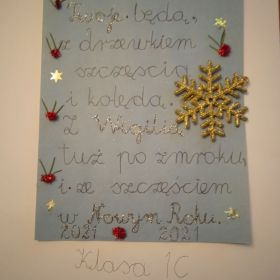 Twoje będą,
z drzewkiem
szczęścia
i kolędą.
Z Wigilią
tuż po zmroku,
i ze szczęściem
w Nowym Roku.
2021 2021
Klasa 1C